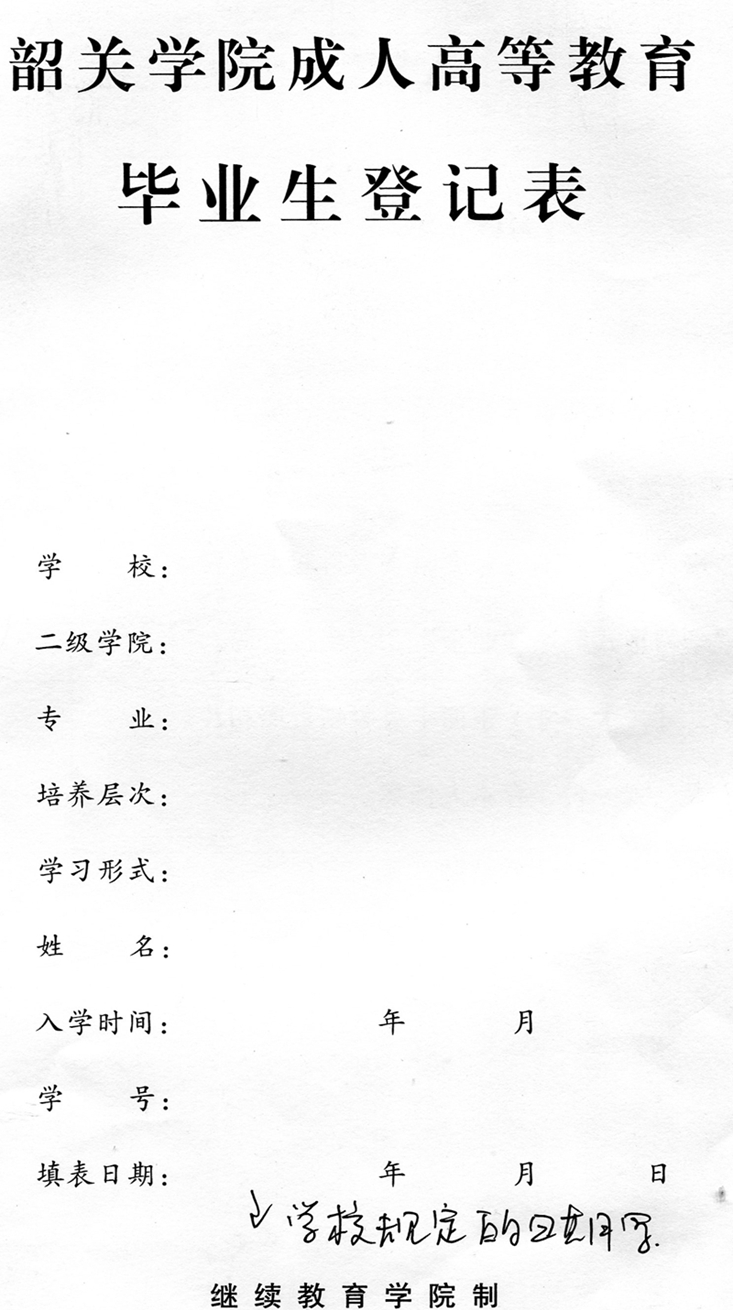 韶关学院成人高等教育
毕业生登记表
学 校：
二级学院：
专 业：
培养层次：
学习形式：
姓 名：
入学时间： 年 月
学 号：
填表日期： 年 月 日
学校规定的日期写.
继续教育学院制